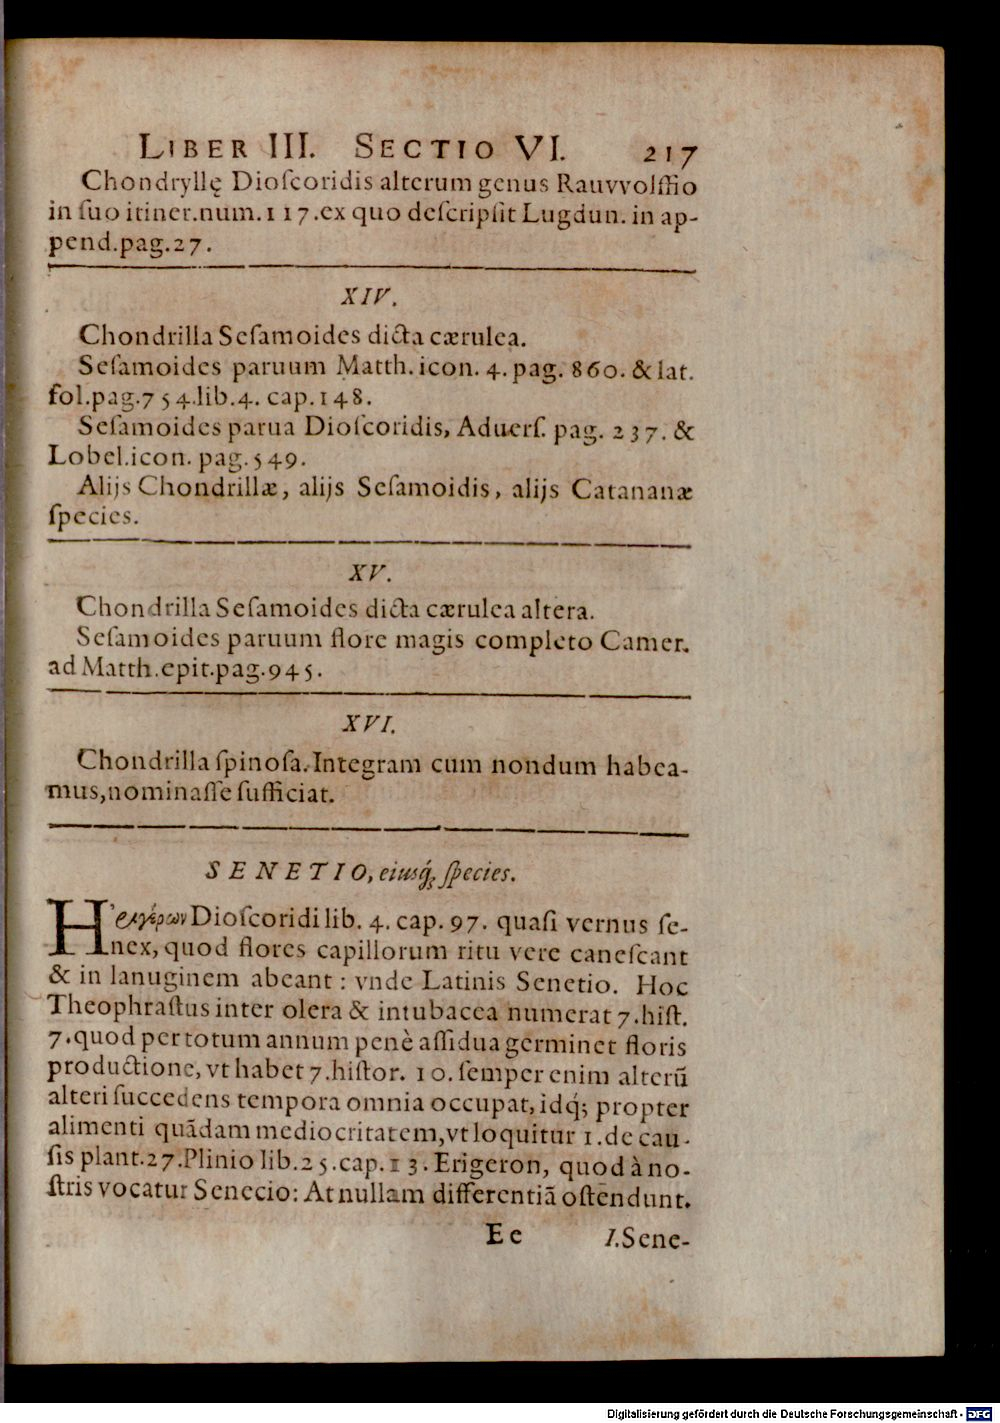 LIBER III. SECTIO VI. 217
Chondryllę Dioſcoridis alterum genus Rauvvolffio
in ſuo itiner.num.117.ex quo deſcripſit Lugdun. in ap-
pend.pag.27.
XIV.
Chondrilla Seſamoides dicta cærulea.
Seſamoides paruum Matth.icon. 4. pag. 860. & lat.
fol.pag.754.lib.4. cap.148.
Seſamoides parua Dioſcoridis, Aduerſ. pag. 237. &
Lobel.icon. pag.549.
Alijs Chondrillæ, alijs Seſamoidis, alijs Catananæ
ſpecies.
XV.
Chondrilla Seſamoides dicta cærulea altera.
Seſamoides paruum flore magis completo Camer.
ad Matth.epit.pag.945.
XVI.
Chondrilla ſpinoſa. Integram cum nondum habea-
mus,nominaſſe ſufficiat.
SENETIO, eiusq́; ſpecies.
Ἠριγέρων Dioſcoridi lib. 4. cap. 97. quaſi vernus ſe-
nex, quod flores capillorum ritu vere caneſcant
& in lanuginem abeant : vnde Latinis Senetio. Hoc
Theophraſtus inter olera & intubacea numerat 7.hiſt.
7.quod per totum annum penè aſſidua germinet floris
productione, vt habet 7.hiſtor. 10. ſemper enim alterū
alteri ſuccedens tempora omnia occupat, idq́; propter
alimenti quādam mediocritatem,vt loquitur 1.de cau-
ſis plant.27.Plinio lib.25.cap.13. Erigeron, quod à no-
ſtris vocatur Senecio: At nullam differentiā oſtendunt.
Ee I.Sene-
Digitalisierung gefördert durch die Deutsche Forschungsgemeinschaft - DFG